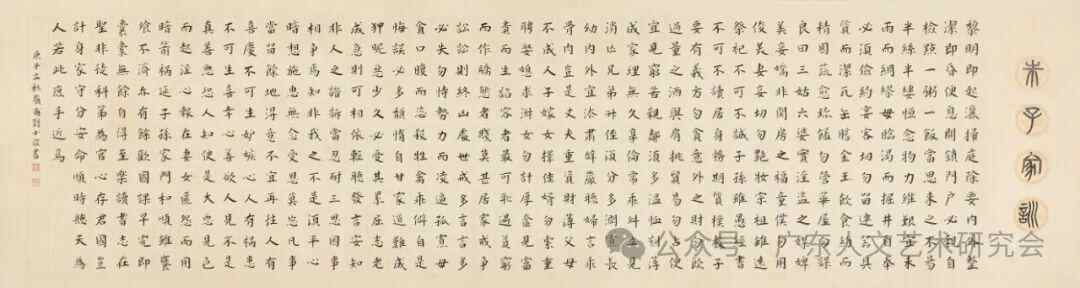 朱子家訓
黎明即起灑掃庭除要内外整
潔即昏便息關鎖門户必親自
檢點一粥一飯當思来之不易
半絲半縷恒念物力維艱宜未
雨而綢繆毋臨渴而掘井自奉
必須儉約宴客切勿留連器具
質而潔瓦缶勝金玉飲食約而
精園蔬愈珍饈勿營華屋勿謀
良田三姑六婆實淫盗之媒婢
美妾嬌非閨房之福童僕勿用
俊美妻妾切勿艷妝宗祖雖遠
祭祀不可不誠子孫雖愚經書
不可不讀居身務期質樸教子
要有義方勿貪意外之財勿飲
過量之酒與肩挑貿易勿占便
宜見窮苦親鄰須多温恤刻薄
成家理無久享倫常乖舛立見
消亡兄弟叔姪須分多潤寡長
幼内外宜法肅辭嚴聽婦言乖
骨肉豈是丈夫重資財薄父母
不成人子嫁女擇佳婿勿索重
聘娶媳求淑女勿計厚奩見富
貴而生諂容者最可恥遇貧窮
而作驕態者賤莫甚居家戒争
訟訟則終凶處世戒多言言多
必失勿恃勢力而凌逼孤寡毋
貪口腹而恣殺牲禽乖僻自是
悔誤必多頹惰自甘家道難成
狎昵惡少久必受其累屈志老
成急則可相依輕聽發言安知
非人之譖訴當忍耐三思因事
相争焉知非我之不是須平心
暗想施惠無念受恩莫忘凡事
當留餘地得意不宜再往人有
喜慶不可生妒嫉心人有禍患
不可生喜幸心善欲人見不是
真善惡恐人知便是大惡見色
而起淫心報在妻女匿怨而用
暗箭禍延子孫家門和順雖饔
飧不濟亦有餘歡國課早完即
囊橐無餘自得至樂讀書志在
聖非徒科第為官心存君國豈
計身家守分安命順時聽天為
人若此庶乎近焉
公众号 · 广东人文艺术研究会